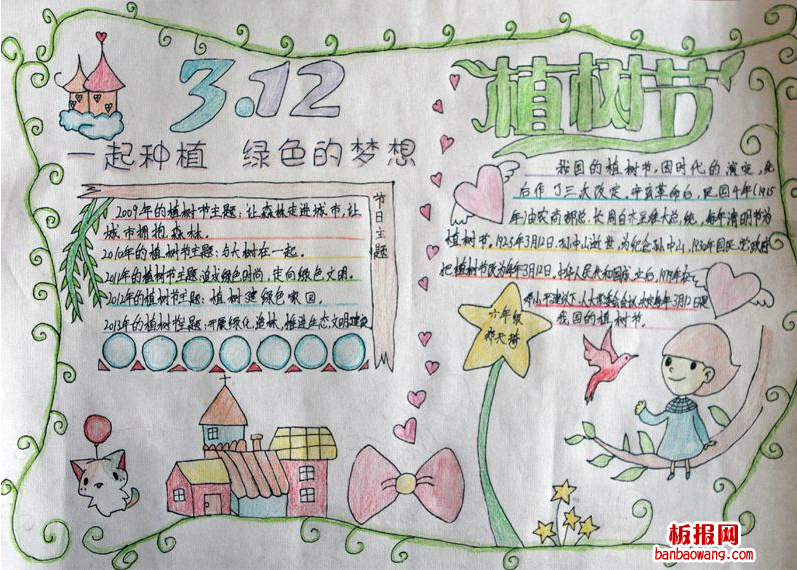 3.12
植树节
一起种植 绿色的梦想
节日主题
2009年的植树节主题：让森林走进城市，让
城市拥抱森林。
2010年的植树节主题：与大树在一起。
2011年的植树节主题：追求绿色时尚，走向绿色文明。
2012年的植树节主题：植树建绿色家园。
2013年的植树节主题：开展绿化造林，推进生态文明建设
我国的植树节，因时代的演变，先
后作了三次改定。辛亥革命后，民国4年(1915
年)由农商部总长周自齐呈准大总统，每年清明节为
植树节。1925年3月12日，孙中山逝世，为纪念孙中山，1930年国民党政府
把植树节改为每年3月12日。中华人民共和国成立后，1979年
邓小平提议下，人大常委会会议决定每年3月12日是
我国的植树节。
六年级
板报网
banbaowang.com